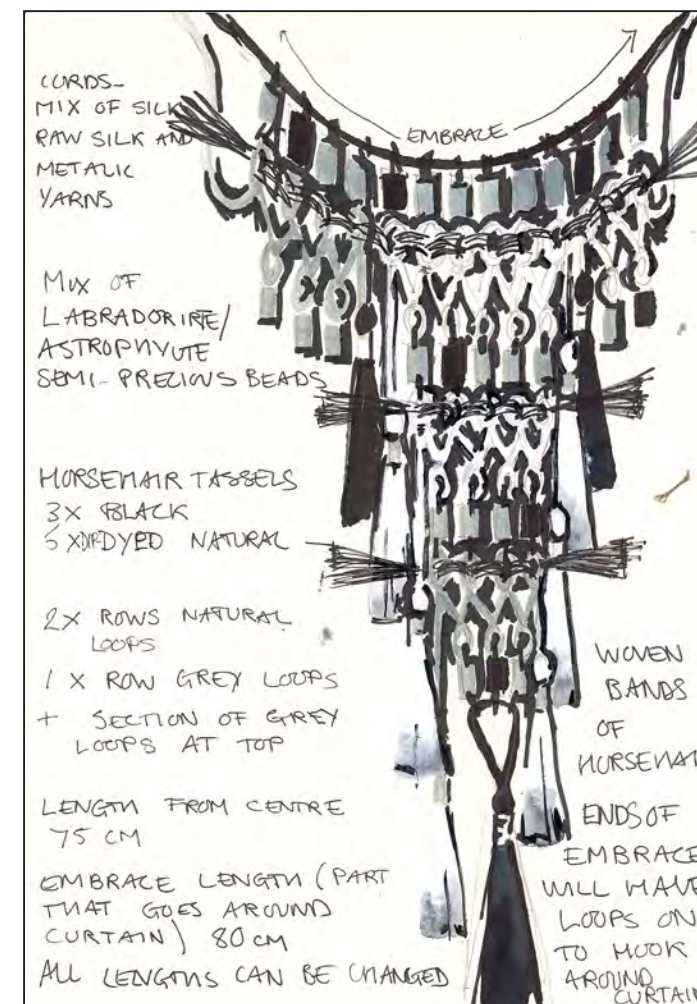 CORDS-
MIX OF SILK
RAW SILK AND
METALIC
YARNS
EMBRACE
MIX OF
LABRADORIRTE/
ASTROPHYLITE
SEMI-PRECIOUS BEADS
HORSEHAIR TASSELS
3X BLACK
5 XDIPDYED NATURAL
2X ROWS NATURAL
LOOPS
1 X ROW GREY LOOPS
+ SECTION OF GREY
LOOPS AT TOP
LENGTH FROM CENTRE
75 CM
EMBRACE LENGTH (PART
THAT GOES AROUND
CURTAIN) 80 CM
ALL LENGTHS CAN BE CHANGED
WOVEN
BANDS
OF
HORSEHAIR
ENDS OF
EMBRACE
WILL HAVE
LOOPS ON
TO HOOK
AROUND
CURTAIN